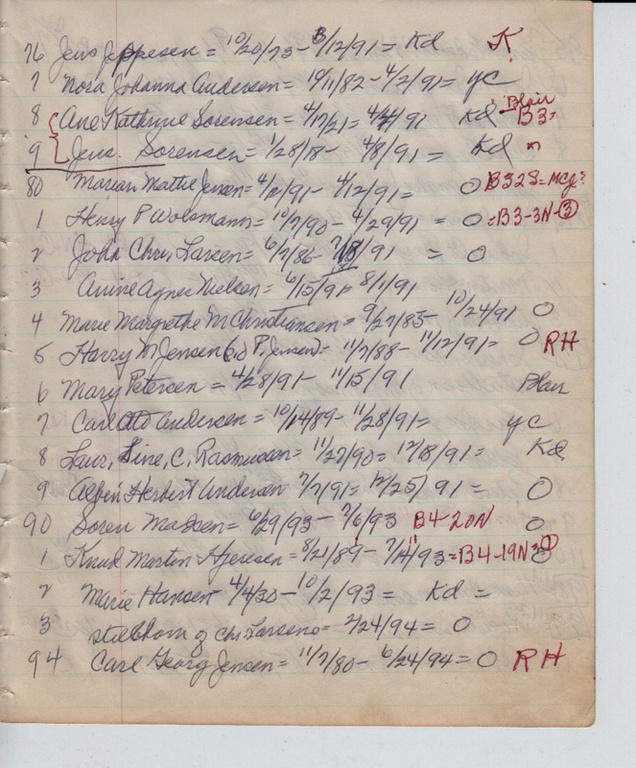 76 Jens Jeppesen = 10/20/73 - 3/12/91 = Kd K
7 Nora Johanna Andersen = 10/11/82 - 4/2/91 = yc
8 Ane Kathrine Sorensen = 4/17/21 = 4/4/91 Kd Blair B3=
9 Jens Sorensen = 1/28/18 - 4/8/91 = Kd "
80 Marian Mattie Jensen = 4/2/91 - 4/12/91 = O B32S = McJ?
1 Henry P Wolsmann = 10/7/90 - 4/29/91 = O = B3-3N-3
2 John Chris Larsen = 6/7/86 - /91 = O
3 Anine Agnes Nielsen = 6/15/91 - 8/1/91
4 Marie Margrethe M Christiansen = 9/27/85 - 10/24/91 O
5 Harry M Jensen ( P. Jensen) = 11/7/88 - 11/12/91 = O RH
6 Mary Petersen = 4/28/91 - 11/15/91 Blair
7 Carl Otto Andersen = 10/14/89 - 11/28/91 = yc
8 Laur, Sine, C, Rasmussen = 11/27/90 = 12/18/91 = Kd
9 Albin Herbert Andersen 7/7/91 = 12/25/91 = O
90 Soren Madsen = 6/29/93 - 7/6/93 B4-20N O
1 Knud Morten Hjeresen = 8/21/89 - 7/14/93 = B4-19N = 1 O
2 Marie Hansen 4/4/30 - 10/2/93 = Kd =
3 stillborn of Chr Larsens = 2/24/94 = O
94 Carl Georg Jensen = 11/7/80 - 6/24/94 = O RH